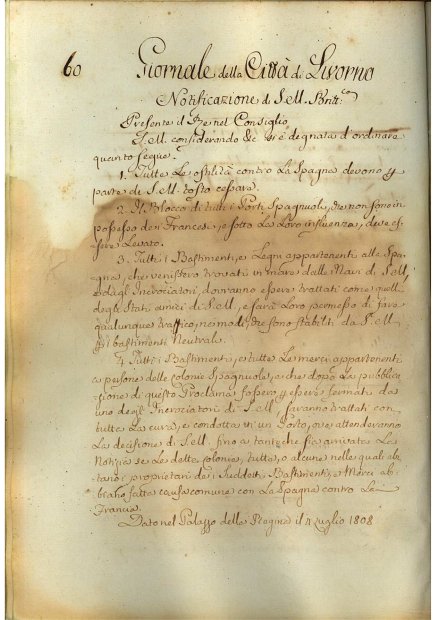 60 Giornale della Città di Livorno
Notificazione di S.M. Britt:ca
Presente il Re nel Consiglio
S.M. considerando &c si è degnata d'ordinare
quanto segue.
1. Tutte Le ostilità contro La Spagna devono p
parte di S.M. tosto cessare.
2. Il Blocco di tutti i Porti Spagnuoli, che non sono in
possesso dei Francesi, e sotto La Loro influenza, deve es-
sere Levato.
3. Tutti i Bastimenti, e Legni appartenenti alla Spa-
gna, che venissero trovati in mare dalle Navi di S.M.
e dagl'Incrociatori, dovranno essere trattati come quelli
degli Stati amici di S.M., e sarà Loro permesso di fare
qualunque traffico, ne modi, che sono stabiliti da S.M.
pei bastimenti Neutrali.
4. Tutti i Bastimenti, e tutte Le merci appartenenti
a persone delle colonie Spagnuole, e che dopo La pubblica-
zione di questo Proclama fossero essere fermati da
uno degli Incrociatori di S.M., saranno trattati con
tutta La cura, e condotti in un Porto, ove attenderanno
La decisione di S.M. fino a tanto che sia arrivata La
Notizia se Le dette colonie, tutte, o alcune nelle quali abi-
tano i proprietari dei suddetti Bastimenti, e Merci ab-
biano fatto causa comune con La Spagna contro La
Francia.
Dato nel Palazzo della Regina il 4 Luglio 1808